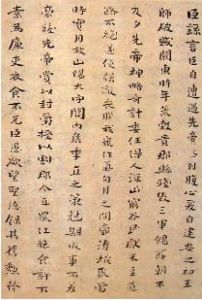 臣繇言臣自遭遇先帝忝列腹心爰自建安之初王
師破賊關東時年荒穀貴郡縣殘毀三軍餽饟朝不
及夕先帝神略奇計委任得人深山窮谷民獻米豆道
路不絕遂使強敵喪膽我眾作氣旬月之間廓清蟻聚當
時實用故山陽太守關內侯季直之策剋期成事不差
豪髮先帝賞以封爵授以劇郡今直罷任旅食許下
素為廉吏衣食不充臣愚欲望聖德錄其舊勳矜